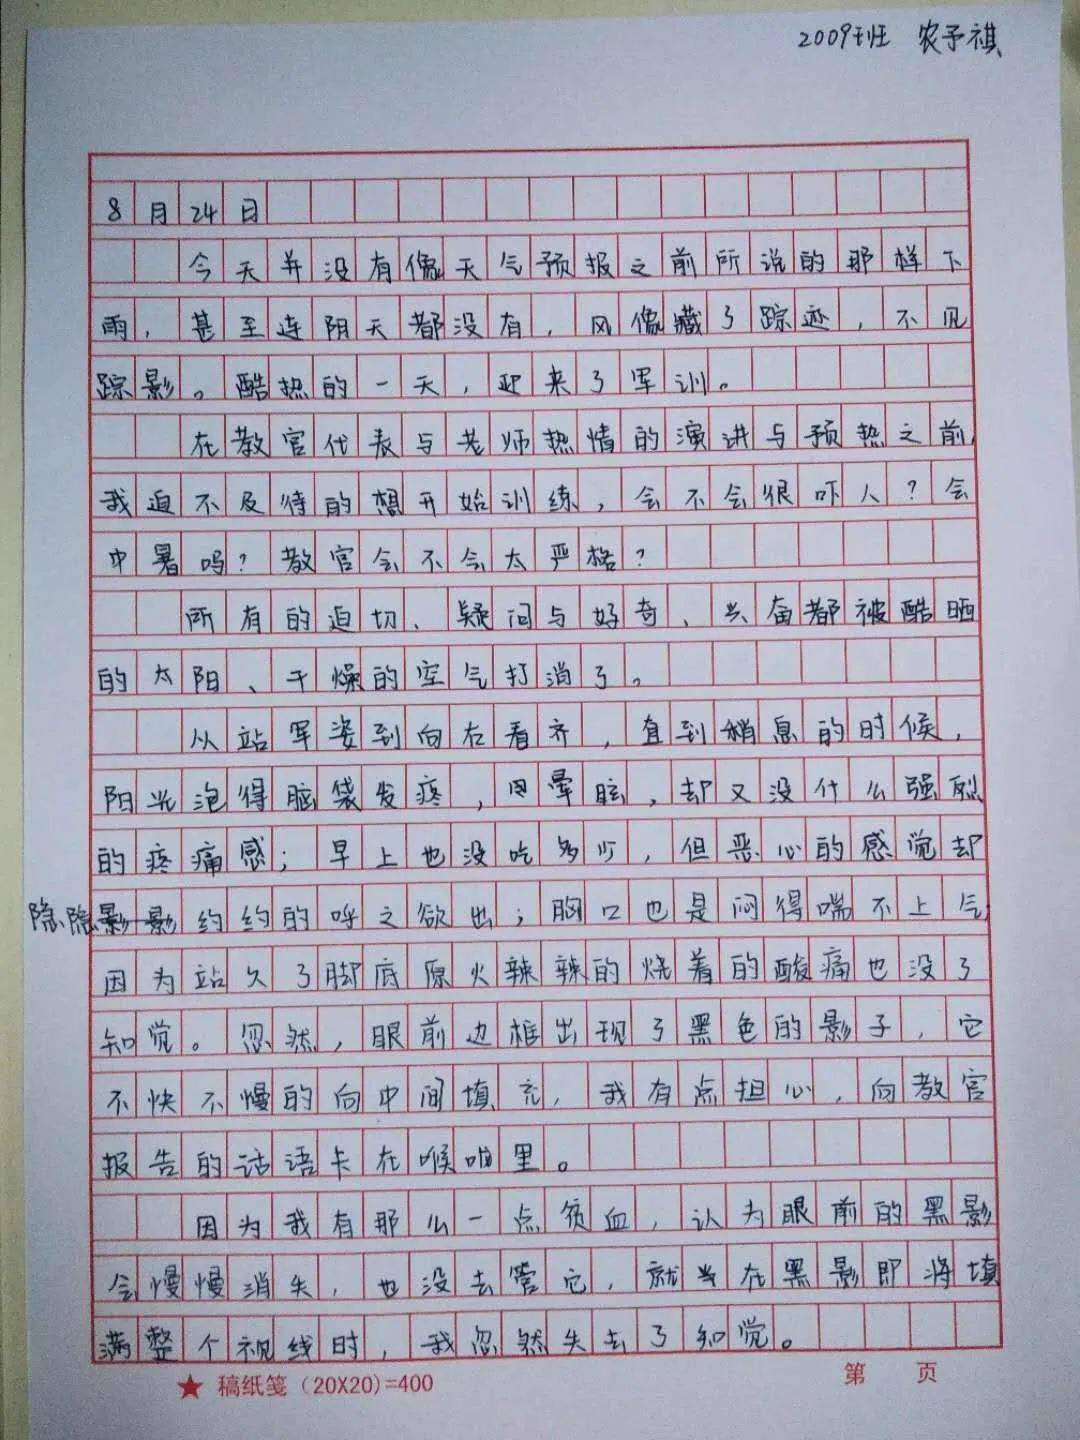 2009班 农予祺
8月24日
今天并没有像天气预报之前所说的那样下
雨，甚至连阴天都没有，风像藏了踪迹，不见
踪影。酷热的一天，迎来了军训。
在教官代表与老师热情的演讲与预热之前，
我迫不及待的想开始训练，会不会很吓人？会
中暑吗？教官会不会太严格？
所有的迫切、疑问与好奇、兴奋都被酷晒
的太阳、干燥的空气打消了。
从站军姿到向右看齐，直到稍息的时候，
阳光泡得脑袋发疼，晕眩，却又没什么强烈
的疼痛感；早上也没吃多少，但恶心的感觉却
隐隐约约的呼之欲出；胸口也是闷得喘不上气，
因为站久了脚底原火辣辣的烧着的酸痛也没了
知觉。忽然，眼前边框出现了黑色的影子，它
不快不慢的向中间填充，我有点担心，向教官
报告的话语卡在喉咙里。
因为我有那么一点贫血，认为眼前的黑影
会慢慢消失，也没去管它，就当在黑影即将填
满整个视线时，我忽然失去了知觉。
★ 稿纸笺（20X20）=400 第 页